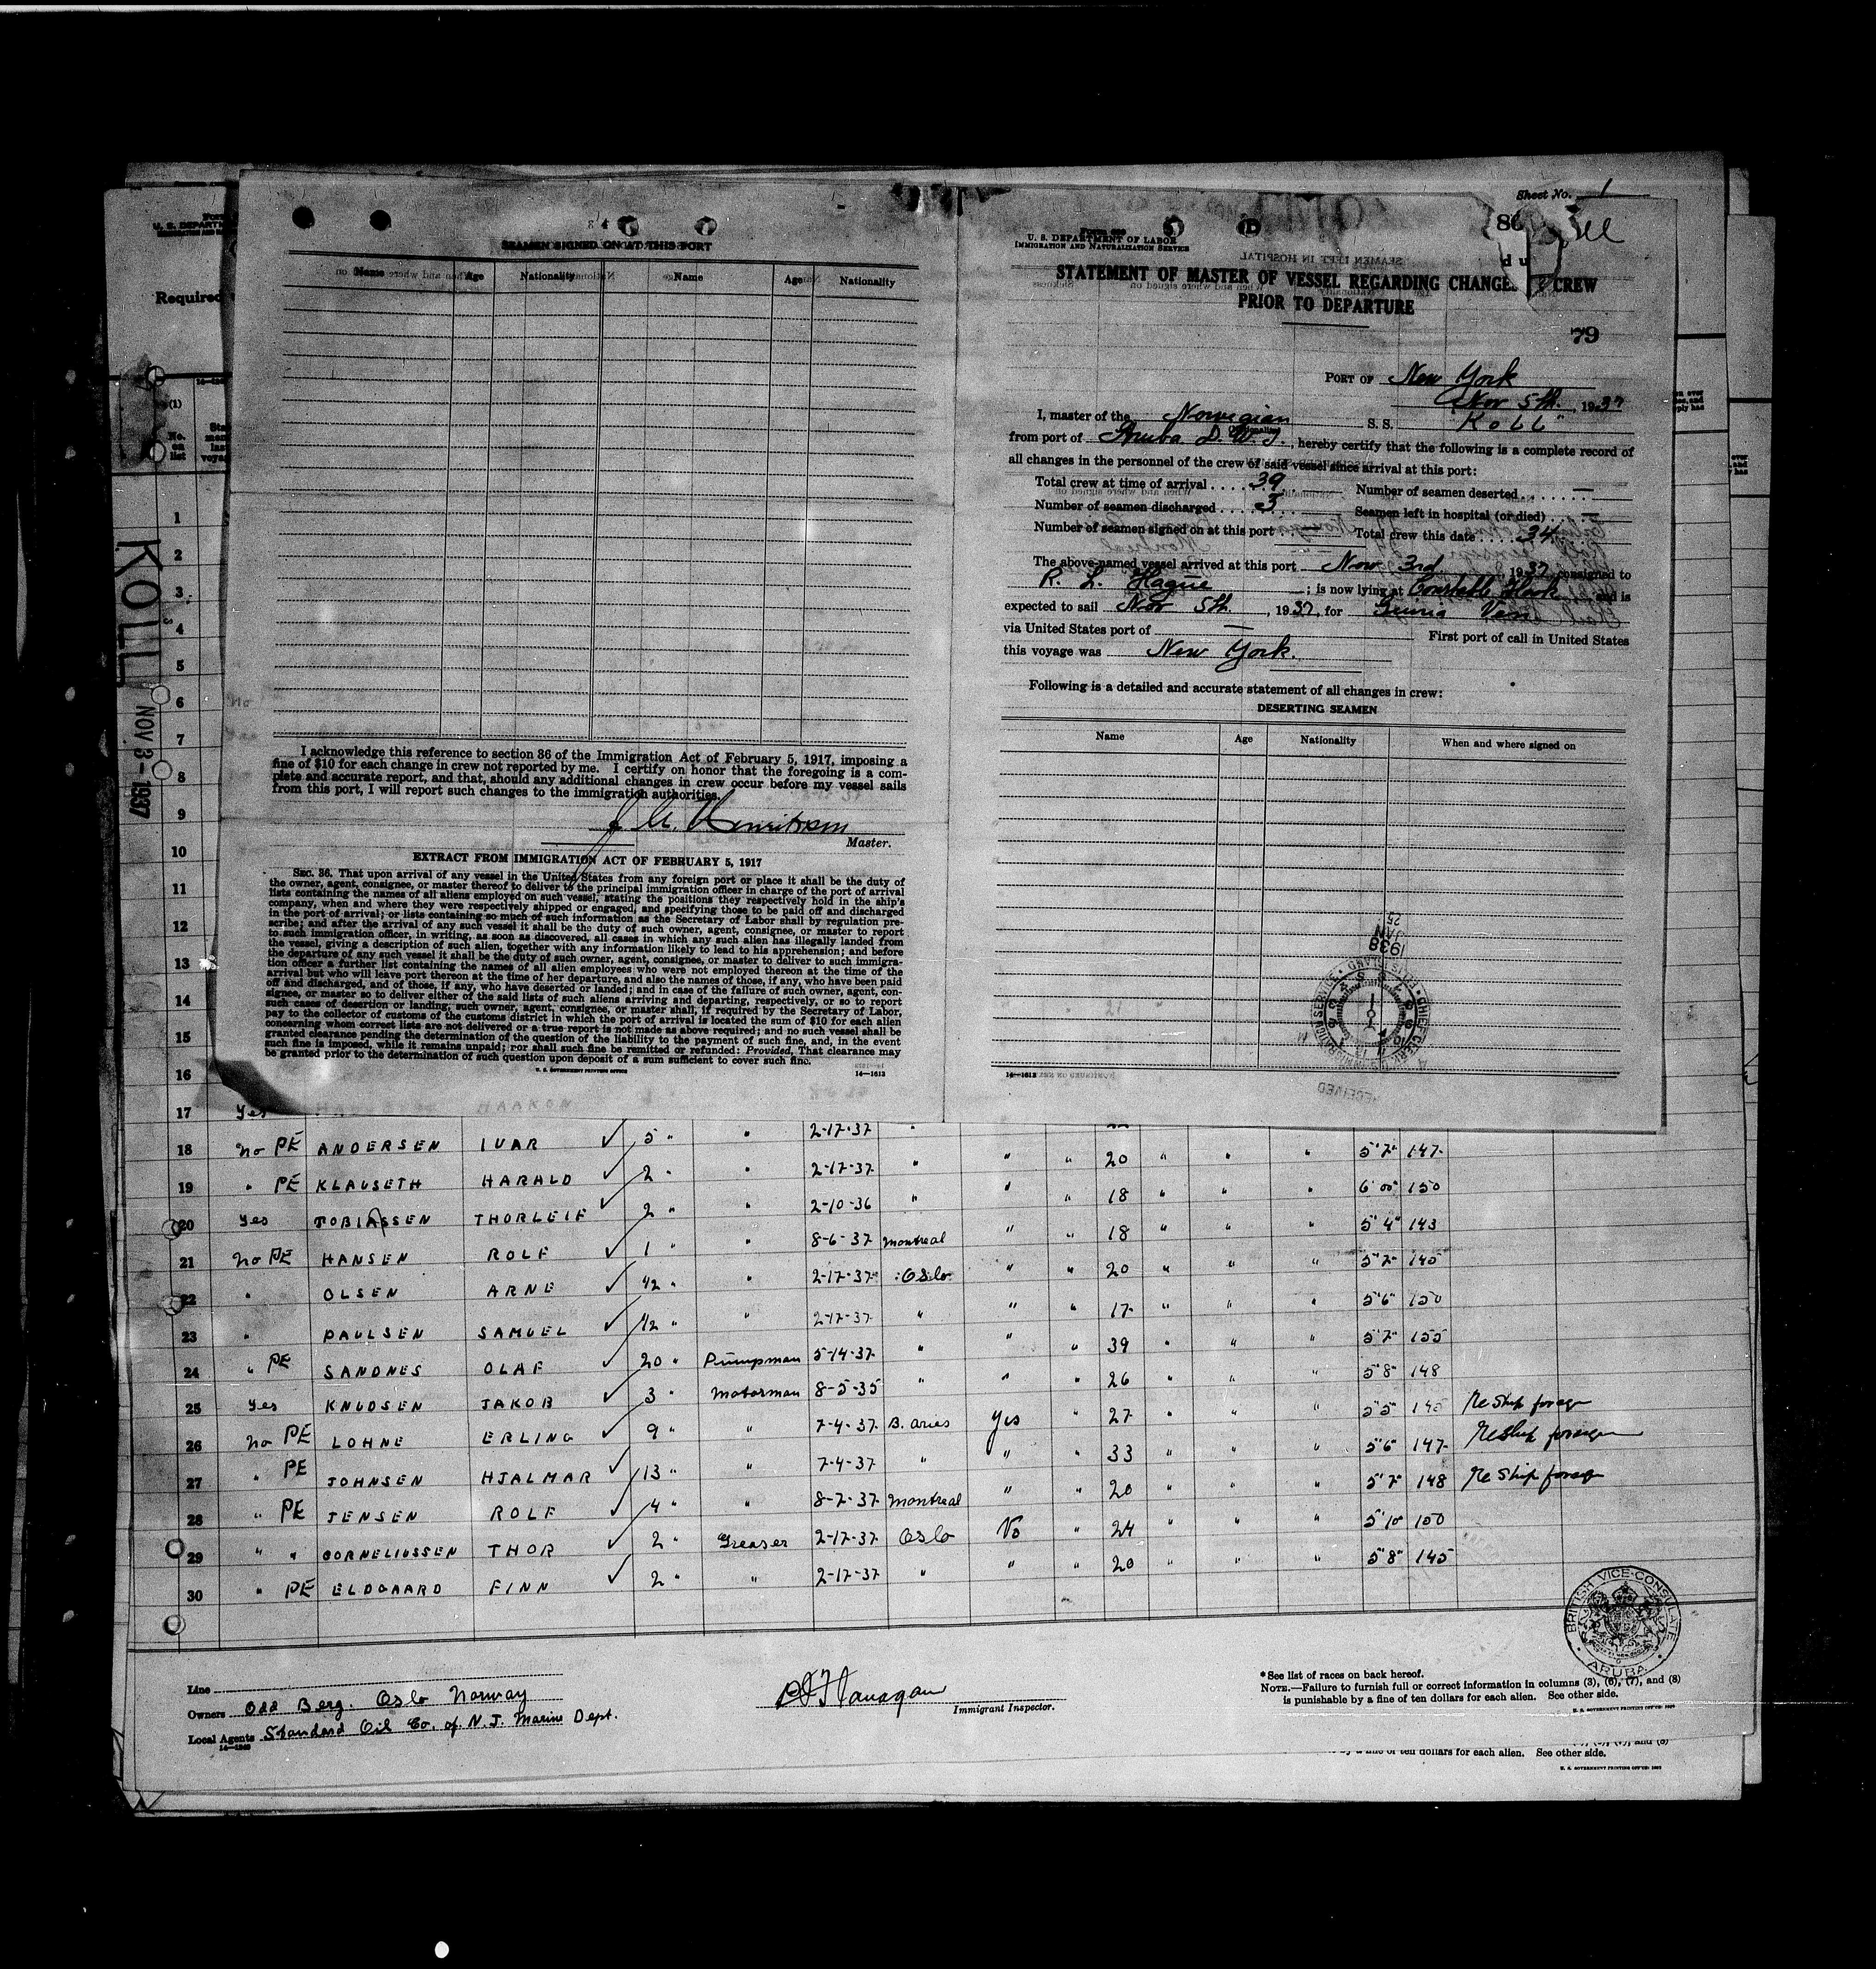 Sheet No. 1
SEAMEN SIGNED ON AT THIS PORT
Name Age Nationality Name Age Nationality
I acknowledge this reference to section 36 of the Immigration Act of February 5, 1917, imposing a
fine of $10 for each change in crew not reported by me. I certify on honor that the foregoing is a com-
plete and accurate report, and that, should any additional changes in crew occur before my vessel sails
from this port, I will report such changes to the immigration authorities.
Master.
EXTRACT FROM IMMIGRATION ACT OF FEBRUARY 5, 1917
SEC. 36. That upon arrival of any vessel in the United States from any foreign port or place it shall be the duty of
the owner, agent, consignee, or master thereof to deliver to the principal immigration officer in charge of the port of arrival
lists containing the names of all aliens employed on such vessel, stating the positions they respectively hold in the ship's
company, when and where they were respectively shipped or engaged, and specifying those to be paid off and discharged
in the port of arrival; or lists containing so much of such information as the Secretary of Labor shall by regulation pre-
scribe; and after the arrival of any such vessel it shall be the duty of such owner, agent, consignee, or master to report
to such immigration officer, in writing, as soon as discovered, all cases in which any such alien has illegally landed from
the vessel, giving a description of such alien, together with any information likely to lead to his apprehension; and before
the departure of any such vessel it shall be the duty of such owner, agent, consignee, or master to deliver to such immigra-
tion officer a further list containing the names of all alien employees who were not employed thereon at the time of the
arrival but who will leave port thereon at the time of her departure, and also the names of those, if any, who have been paid
off and discharged, and of those, if any, who have deserted or landed; and in case of the failure of such owner, agent, con-
signee, or master so to deliver either of the said lists of such aliens arriving and departing, respectively, or so to report
such cases of desertion or landing, such owner, agent, consignee, or master shall, if required by the Secretary of Labor,
pay to the collector of customs of the customs district in which the port of arrival is located the sum of $10 for each alien
concerning whom correct lists are not delivered or a true report is not made as above required; and no such vessel shall be
granted clearance pending the determination of the question of the liability to the payment of such fine, and, in the event
such fine is imposed, while it remains unpaid; nor shall such fine be remitted or refunded: Provided, That clearance may
be granted prior to the determination of such question upon deposit of a sum sufficient to cover such fine.
U. S. GOVERNMENT PRINTING OFFICE 14—1613
U. S. DEPARTMENT OF LABOR
IMMIGRATION AND NATURALIZATION SERVICE
STATEMENT OF MASTER OF VESSEL REGARDING CHANGES CREW
PRIOR TO DEPARTURE
79
PORT OF New York
Nov 5th, 1937
I, master of the Norwegian S. S. "Koll"
from port of Aruba D. W. I., hereby certify that the following is a complete record of
all changes in the personnel of the crew of said vessel since arrival at this port:
Total crew at time of arrival .... 39 Number of seamen deserted ....... —
Number of seamen discharged .... 3 Seamen left in hospital (or died) .... —
Number of seamen signed on at this port — Total crew this date .... 34
The above-named vessel arrived at this port Nov 3rd, 1937, consigned to
R. L. Hague; is now lying at Constable Hook and is
expected to sail Nov 5th, 1937, for
via United States port of — First port of call in United States
this voyage was New York.
Following is a detailed and accurate statement of all changes in crew:
DESERTING SEAMEN
Name Age Nationality When and where signed on
1938
JAN
25
14—1613
Required
(1)
No. on list
KOLL
NOV 3-1937
1
2
3
4
5
6
7
8
9
10
11
12
13
14
15
16
17 Yes HAAKON
18 no PE ANDERSEN IVAR ✓ 5 " " 2-17-37 "
19 " PE KLAUSETH HARALD ✓ 2 " " 2-17-37 " " " 20 " " " 5'7" 147
20 Yes TOBIASSEN THORLEIF ✓ 2 " " 2-10-36 " " " 18 " " " 6'00" 150
21 No PE HANSEN ROLF ✓ 1 " " 8-6-37 Montreal " " 18 " " " 5'4" 143
22 " OLSEN ARNE ✓ 1/2 " " 2-17-37 Oslo " " 20 " " " 5'7" 145
23 " PAULSEN SAMUEL ✓ 1/2 " " 2-17-37 " " " 17 " " " 5'6" 150
24 " PE SANDNES OLAF ✓ 20 " Pumpman 5-14-37 " " " 39 " " " 5'7" 155
25 Yes KNUDSEN JAKOB ✓ 3 " Motorman 8-5-35 " " " 26 " " " 5'8" 148
26 no PE LOHNE ERLING ✓ 9 " " 7-4-37 B. aries Yes " 27 " " " 5'5" 145 Re Ship foreign
27 " PE JOHNSEN HJALMAR ✓ 13 " " 7-4-37 " " " 33 " " " 5'6" 147 Re Ship foreign
28 " PE JENSEN ROLF ✓ 4 " " 8-7-37 Montreal " " 20 " " " 5'7" 148 Re Ship foreign
29 " " CORNELIUSSEN THOR ✓ 2 " Greaser 2-17-37 Oslo No " 24 " " " 5'10" 150
30 " PE ELDGAARD FINN ✓ 2 " " 2-17-37 " " " 20 " " " 5'8" 145
BRITISH VICE-CONSULATE
ARUBA
Line
Owners Odd Berg. Oslo Norway
Local Agents Standard Oil Co. of N. J. Marine Dept.
Immigrant Inspector.
*See list of races on back hereof.
NOTE.—Failure to furnish full or correct information in columns (3), (6), (7), and (8)
is punishable by a fine of ten dollars for each alien. See other side.
ten dollars for each alien. See other side.